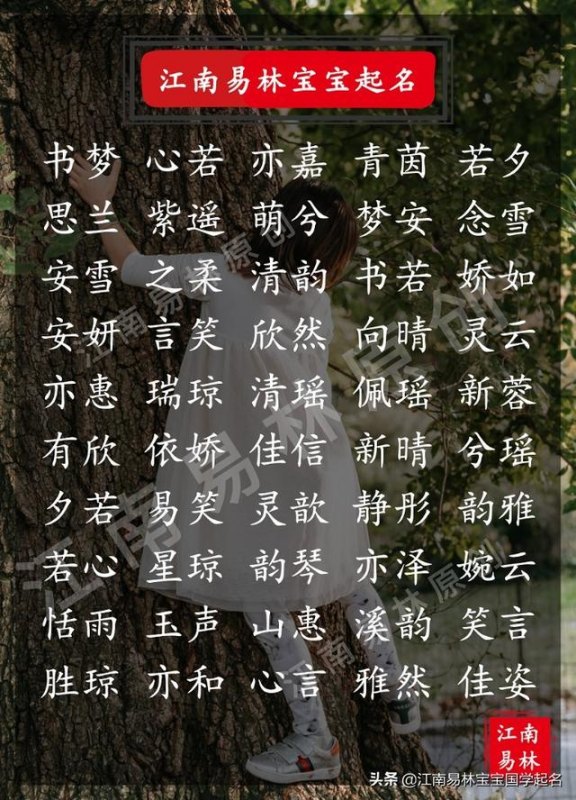 江南易林宝宝起名
书梦 心若 亦嘉 青茵 若夕
思兰 紫遥 萌兮 梦安 念雪
安雪 之柔 清韵 书若 娇如
安妍 言笑 欣然 向晴 灵云
亦惠 瑞琼 清瑶 佩瑶 新蓉
有欣 依娇 佳信 新晴 兮瑶
夕若 易笑 灵歆 静彤 韵雅
若心 星琼 韵琴 亦泽 婉云
恬雨 玉声 山惠 溪韵 笑言
胜琼 亦和 心言 雅然 佳姿
江南易林原创
江南易林原创
江南易林原创
江南
易林
头条 @江南易林宝宝国学起名